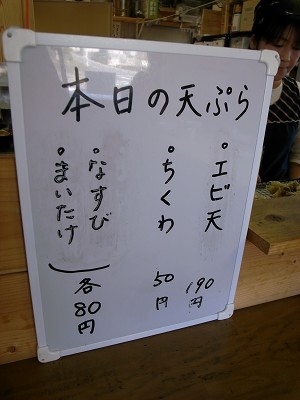 本日の天ぷら
・エビ天 190円
・ちくわ 50円
・なすび
・まいたけ
各80円